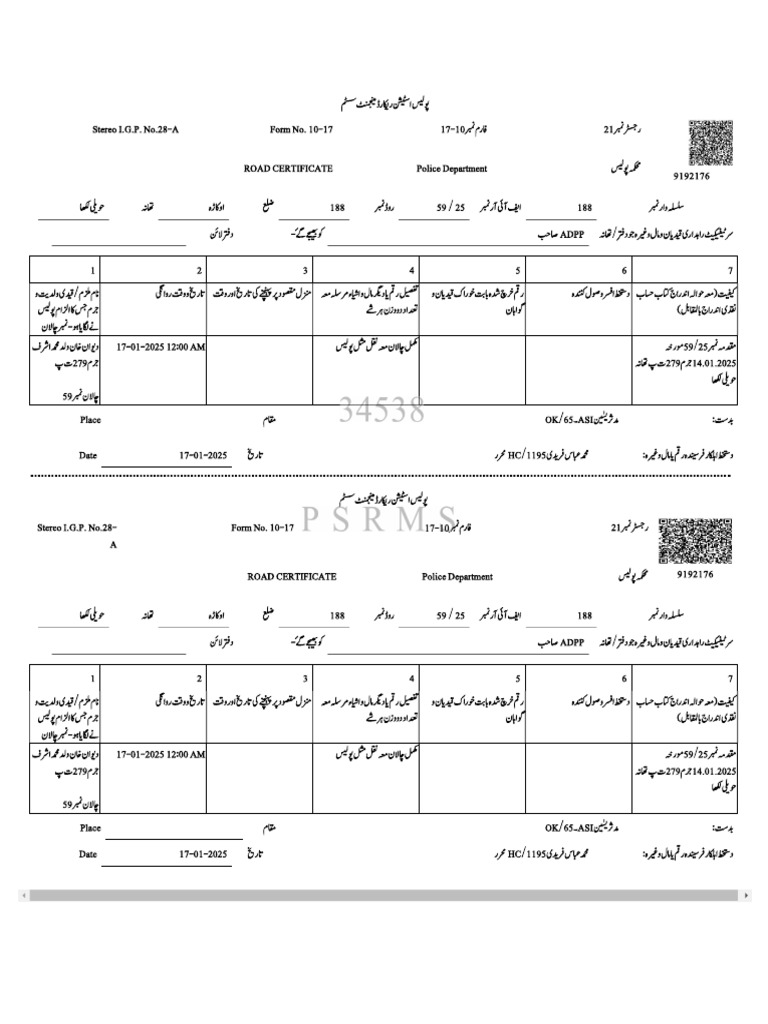 پولیس اسٹیشن ریکارڈ مینجمنٹ سسٹم
رجسٹر نمبر 21 فارم نمبر 10-17 Form No. 10-17 Stereo I.G.P. No.28-A
9192176
محکمہ پولیس Police Department ROAD CERTIFICATE
سلسلہ وار نمبر 188 ایف آئی آر نمبر 59 / 25 روڈ نمبر 188 ضلع اوکاڑہ تھانہ حویلی لکھا
سرٹیفکیٹ راہداری قیدیان ومال وغیرہ جو دفتر / تھانہ ADPP صاحب کو بھیجے گئے- دفتر لائن
1 2 3 4 5 6 7
نام ملزم / قیدی ولدیت و جرم جس کا الزام پولیس نے لگایا ہو- نمبر چالان
تاریخ و وقت روانگی
منزل مقصود پر پہنچنے کی تاریخ اور وقت
تفصیل رقم یا دیگر مال و اشیاء مرسلہ معہ تعداد و وزن ہر شے
رقم خرچ شدہ بابت خوراک قیدیان و گواہان
دستخط افسر وصول کنندہ
کیفیت (معہ حوالہ اندراج کتاب حساب نقدی اندراج بالمقابل)
دیوان خان ولد محمد اشرف
جرم 279 ت پ
چالان نمبر 59
17-01-2025 12:00 AM
مکمل چالان معہ نقل مثل پولیس
مقدمہ نمبر 59/25 مورخہ
14.01.2025 جرم 279 ت پ تھانہ
حویلی لکھا
34538
بدست: مدثر یٰسین OK/65-ASI مقام Place
دستخط اہلکار فرسیندہ رقم یا مال وغیرہ: محمد عباس فریدی HC/1195 محرر تاریخ 17-01-2025 Date
پولیس اسٹیشن ریکارڈ مینجمنٹ سسٹم
PSRMS
رجسٹر نمبر 21 فارم نمبر 10-17 Form No. 10-17 Stereo I.G.P. No.28-
A
9192176
محکمہ پولیس Police Department ROAD CERTIFICATE
سلسلہ وار نمبر 188 ایف آئی آر نمبر 59 / 25 روڈ نمبر 188 ضلع اوکاڑہ تھانہ حویلی لکھا
سرٹیفکیٹ راہداری قیدیان ومال وغیرہ جو دفتر / تھانہ ADPP صاحب کو بھیجے گئے- دفتر لائن
1 2 3 4 5 6 7
نام ملزم / قیدی ولدیت و جرم جس کا الزام پولیس نے لگایا ہو- نمبر چالان
تاریخ و وقت روانگی
منزل مقصود پر پہنچنے کی تاریخ اور وقت
تفصیل رقم یا دیگر مال و اشیاء مرسلہ معہ تعداد و وزن ہر شے
رقم خرچ شدہ بابت خوراک قیدیان و گواہان
دستخط افسر وصول کنندہ
کیفیت (معہ حوالہ اندراج کتاب حساب نقدی اندراج بالمقابل)
دیوان خان ولد محمد اشرف
جرم 279 ت پ
چالان نمبر 59
17-01-2025 12:00 AM
مکمل چالان معہ نقل مثل پولیس
مقدمہ نمبر 59/25 مورخہ
14.01.2025 جرم 279 ت پ تھانہ
حویلی لکھا
بدست: مدثر یٰسین OK/65-ASI مقام Place
دستخط اہلکار فرسیندہ رقم یا مال وغیرہ: محمد عباس فریدی HC/1195 محرر تاریخ 17-01-2025 Date